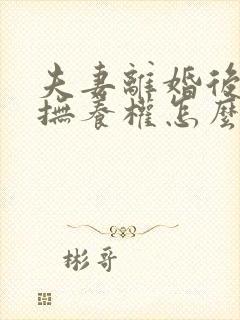 夫妻離婚後
撫養權怎麼
彬哥